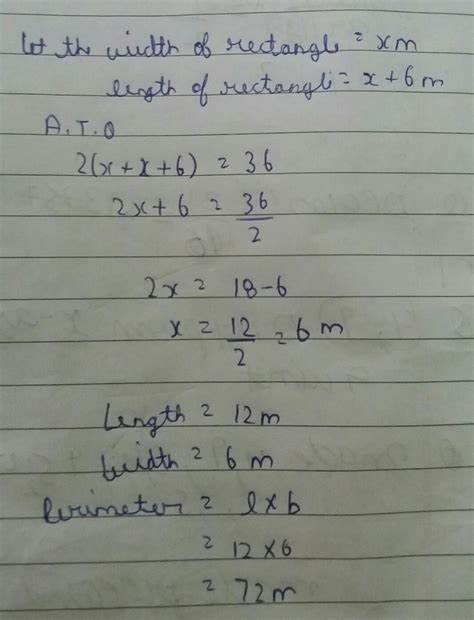 let the width of rectangle = xm
length of rectangle = x+6m
A.T.Q
2(x+x+6) = 36
2x+6 = 36/2
2x = 18-6
x = 12/2 = 6 m
Length = 12m
Width = 6 m
Perimeter = l×b
= 12×6
= 72m